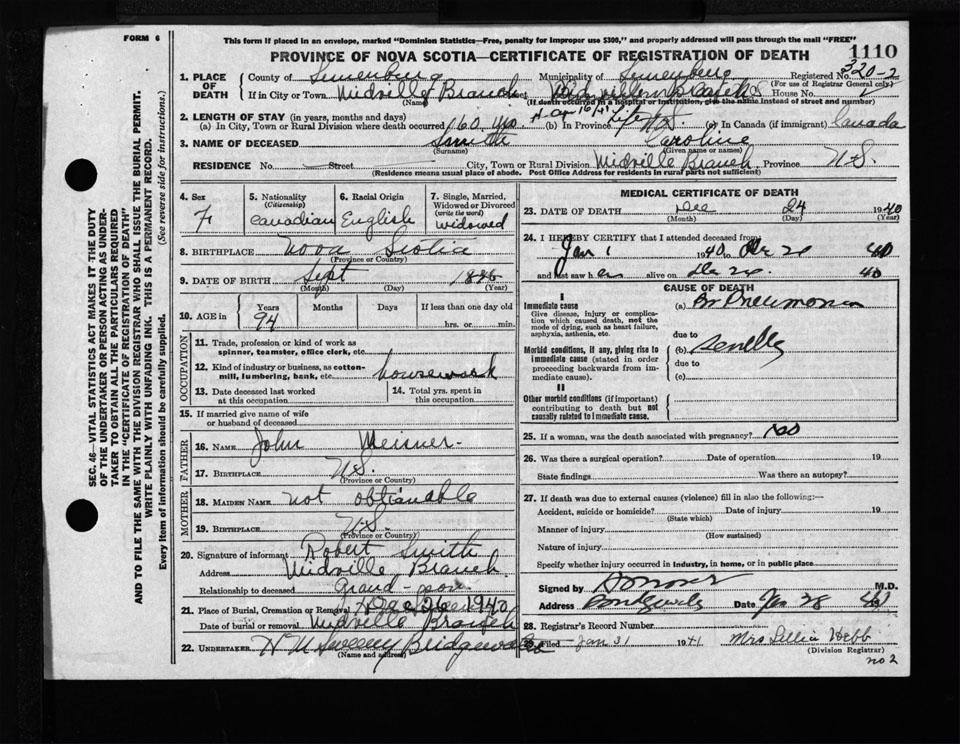 FORM 6
This form if placed in an envelope, marked "Dominion Statistics—Free, penalty for improper use $300," and properly addressed will pass through the mail "FREE"
PROVINCE OF NOVA SCOTIA—CERTIFICATE OF REGISTRATION OF DEATH
1110
SEC. 46—VITAL STATISTICS ACT MAKES IT THE DUTY
OF THE UNDERTAKER OR PERSON ACTING AS UNDER-
TAKER TO OBTAIN ALL THE PARTICULARS REQUIRED
IN THE "CERTIFICATE OF REGISTRATION OF DEATH"
AND TO FILE THE SAME WITH THE DIVISION REGISTRAR WHO SHALL ISSUE THE BURIAL PERMIT.
WRITE PLAINLY WITH UNFADING INK. THIS IS A PERMANENT RECORD.
Every item of information should be carefully supplied. (See reverse side for instructions.)
1. PLACE OF DEATH County of Lunenburg Municipality of Lunenburg Registered No. 320-2
(For use of Registrar General only)
If in City or Town Midville Branch Street House No.
(Name) (If death occurred in a hospital or institution, give the name instead of street and number)
2. LENGTH OF STAY (in years, months and days)
(a) In City, Town or Rural Division where death occurred 60 yrs. (b) In Province Life (c) In Canada (if immigrant) Canada
3. NAME OF DECEASED Smith Caroline
(Surname) (Given name or names)
RESIDENCE No. Street City, Town or Rural Division Midville Branch, Province N.S.
(Residence means usual place of abode. Post Office Address for residents in rural parts not sufficient)
4. Sex F
5. Nationality (Citizenship) Canadian
6. Racial Origin English
7. Single, Married, Widowed or Divorced (write the word) widowed
8. BIRTHPLACE Nova Scotia
(Province or Country)
9. DATE OF BIRTH Sept
(Month) (Day) (Year)
10. AGE in Years 94 Months Days If less than one day old hrs. or min.
OCCUPATION
11. Trade, profession or kind of work as spinner, teamster, office clerk, etc.
12. Kind of industry or business, as cotton-mill, lumbering, bank, etc. housework
13. Date deceased last worked at this occupation
14. Total yrs. spent in this occupation
15. If married give name of wife or husband of deceased
FATHER
16. NAME John Meisner
17. BIRTHPLACE N.S.
(Province or Country)
MOTHER
18. MAIDEN NAME not obtianable
19. BIRTHPLACE N.S.
(Province or Country)
20. Signature of informant Robert Smith
Address Midville Branch
Relationship to deceased Grand-son
21. Place of Burial, Cremation or Removal Dec 26 1940
Date of burial or removal Midville Branch
22. UNDERTAKER Sweeny Bridgewater
(Name and address)
MEDICAL CERTIFICATE OF DEATH
23. DATE OF DEATH Dec 24 1940
(Month) (Day) (Year)
24. I HEREBY CERTIFY that I attended deceased from
Jan 1 1940 to Dec 40
and last saw her alive on Dec 40
CAUSE OF DEATH
I
Immediate cause (a) Br Pneumonia
Give disease, injury or complication which caused death, not the mode of dying, such as heart failure, asphyxia, asthenia, etc.
due to
Morbid conditions, if any, giving rise to immediate cause (stated in order proceeding backwards from immediate cause). (b) Senility
due to
(c)
II
Other morbid conditions (if important) contributing to death but not causally related to immediate cause.
25. If a woman, was the death associated with pregnancy? no
26. Was there a surgical operation? Date of operation 19
State findings Was there an autopsy?
27. If death was due to external causes (violence) fill in also the following:—
Accident, suicide or homicide? Date of injury 19
(State which)
Manner of injury
(How sustained)
Nature of injury
Specify whether injury occurred in industry, in home, or in public place
Signed by M.D.
Address Bridgewater Date Jan 28 41
28. Registrar's Record Number
29. Filed Jan 31 1941 Mrs Lillia Hebb
(Division Registrar)
no 2